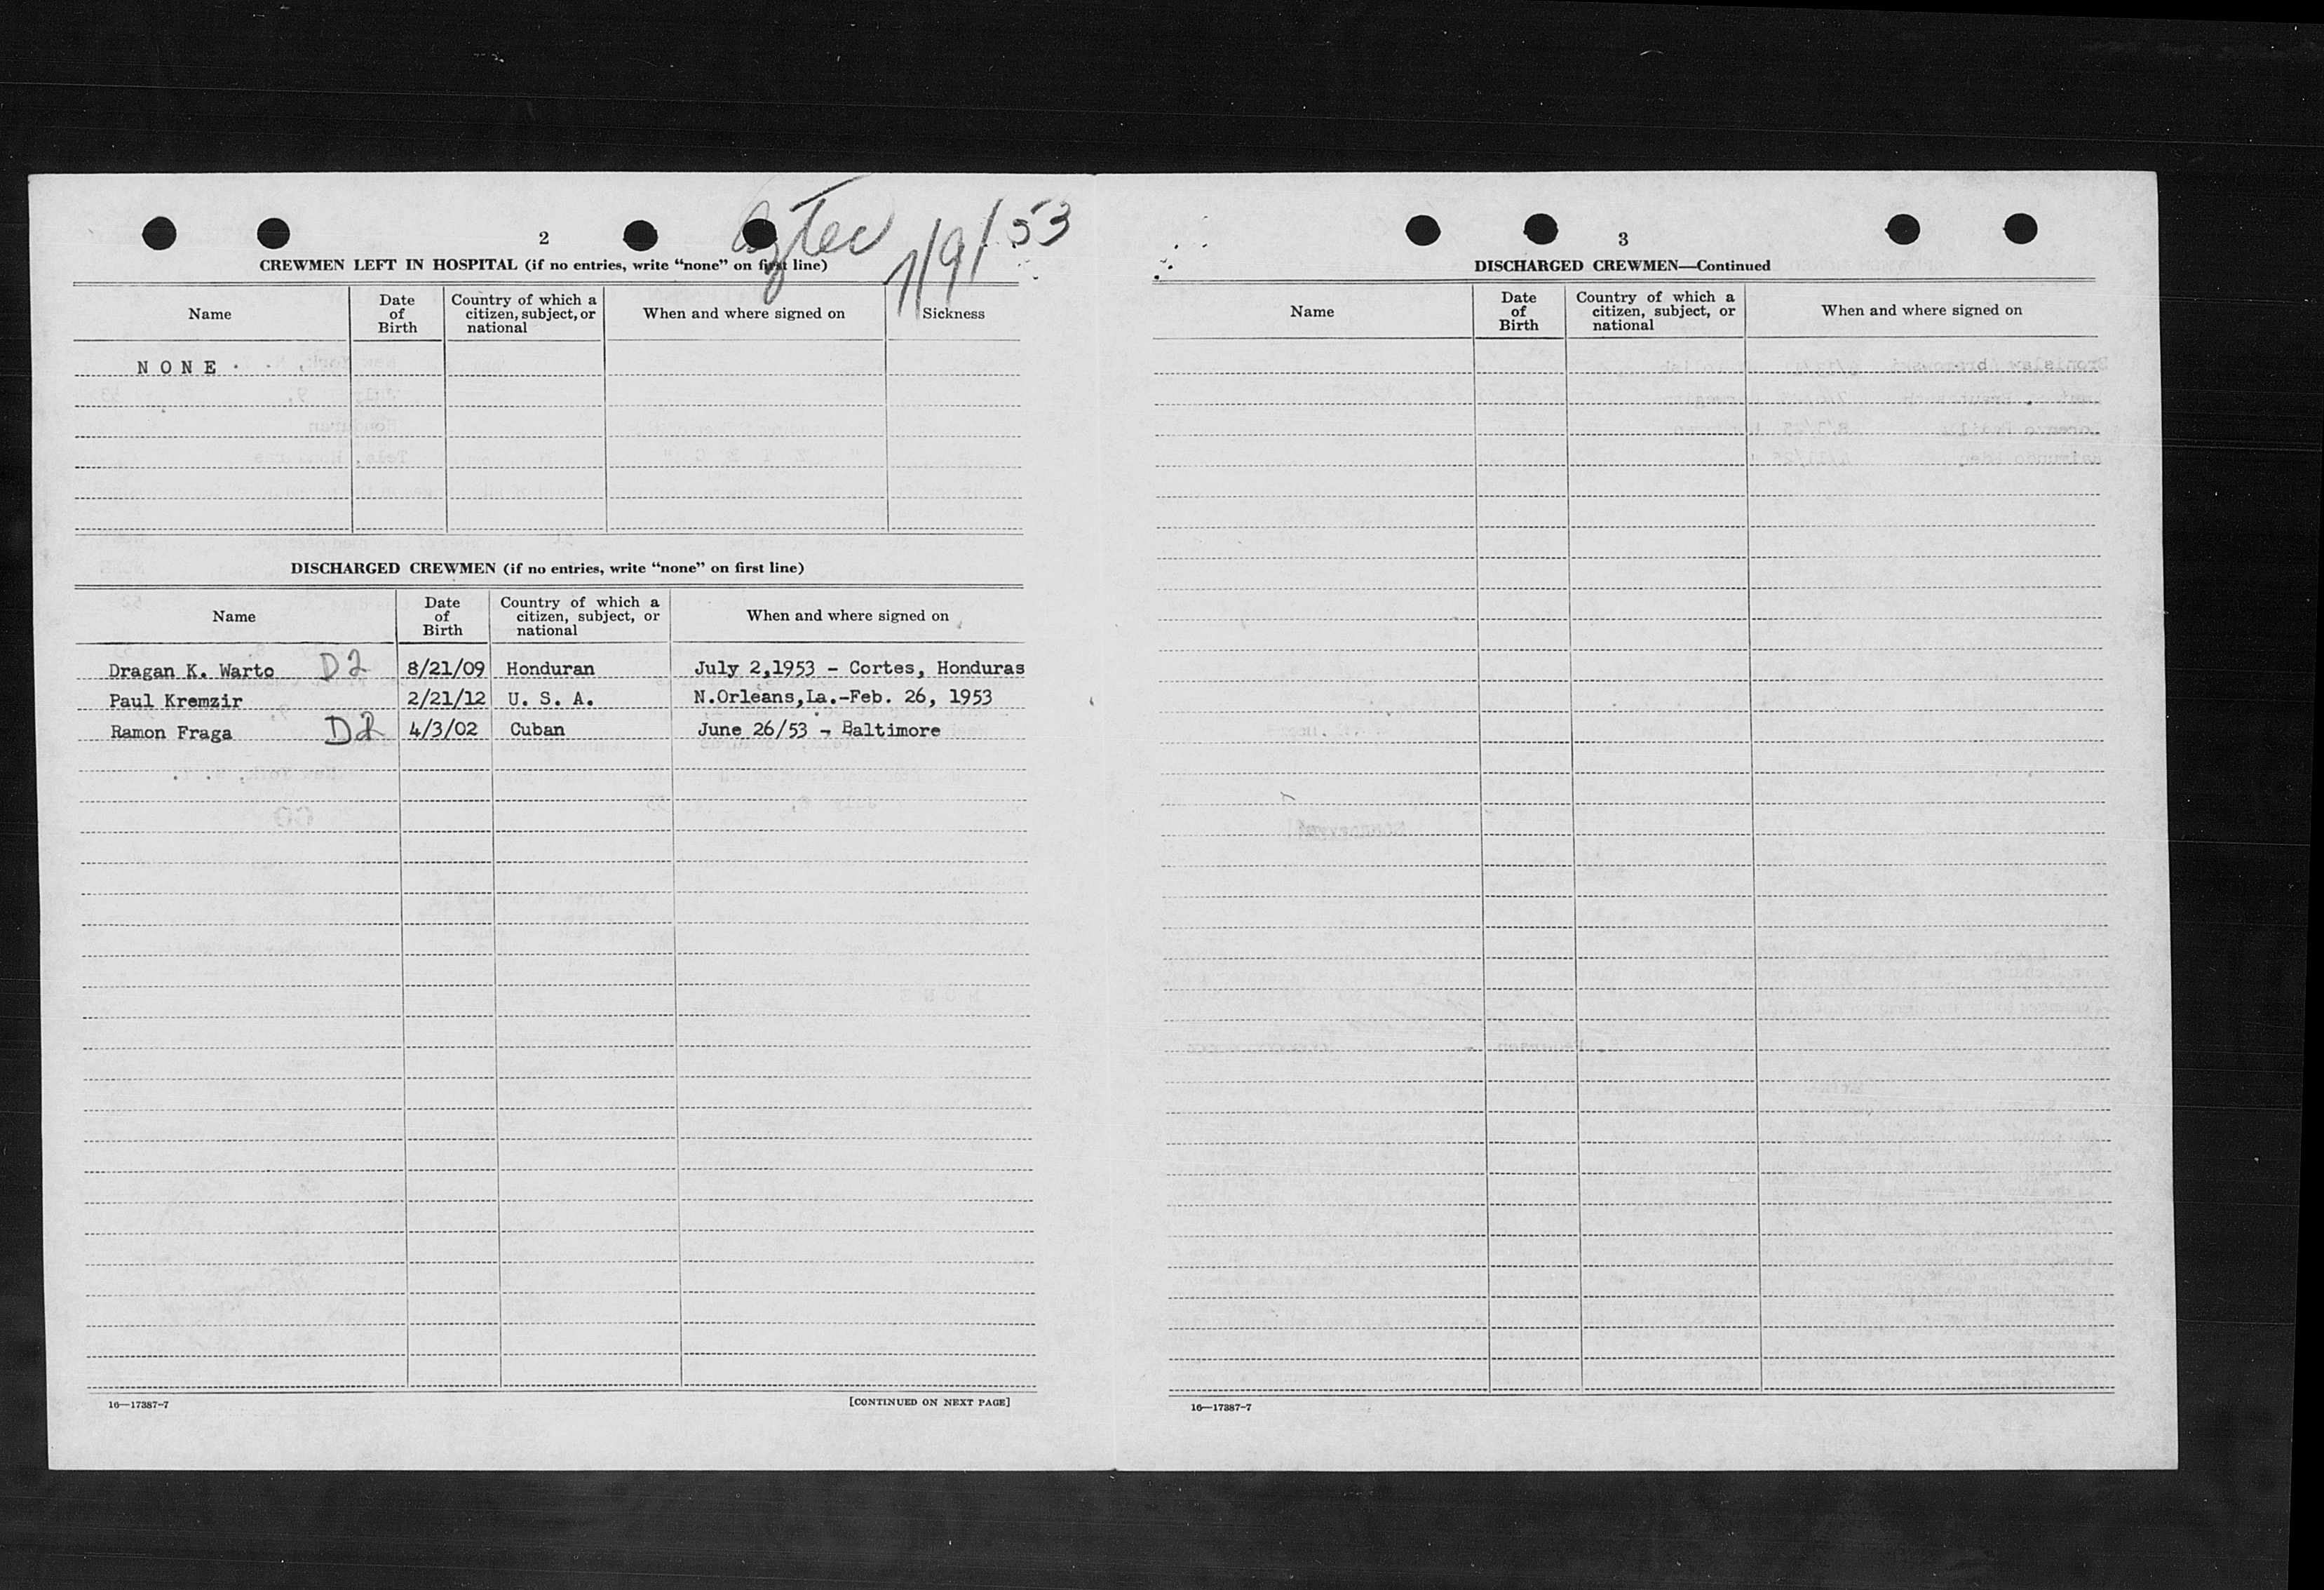 Aztec 7/9/53
2
CREWMEN LEFT IN HOSPITAL (if no entries, write “none” on first line)
Name
Date of Birth
Country of which a citizen, subject, or national
When and where signed on
Sickness
N O N E
DISCHARGED CREWMEN (if no entries, write “none” on first line)
Name
Date of Birth
Country of which a citizen, subject, or national
When and where signed on
Dragan K. Warto D2 8/21/09 Honduran July 2,1953 - Cortes, Honduras
Paul Kremzir 2/21/12 U. S. A. N.Orleans,La.-Feb. 26, 1953
Ramon Fraga D2 4/3/02 Cuban June 26/53 - Baltimore
16—17387-7 [CONTINUED ON NEXT PAGE]
3
DISCHARGED CREWMEN—Continued
Name
Date of Birth
Country of which a citizen, subject, or national
When and where signed on
16—17387-7